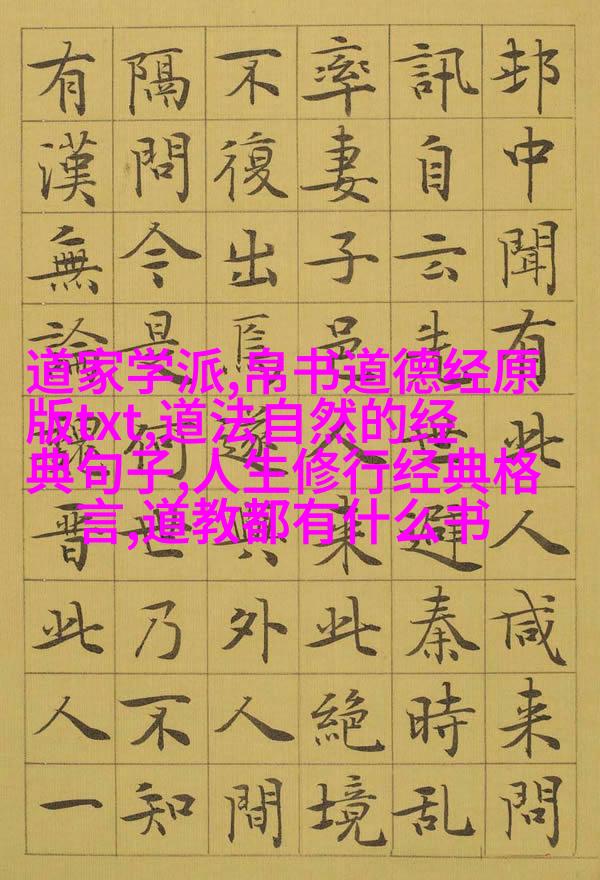 邨中聞有此人咸来問
訊自云先世避秦時乱
率妻子邑人来此絶境
不復出焉遂與外人間
隔問今是何世乃不知
有漢無論魏晋此人一
道家学派,帛书道德经原
版txt,道法自然的经
典句子,人生修行经典格
言,道教都有什么书